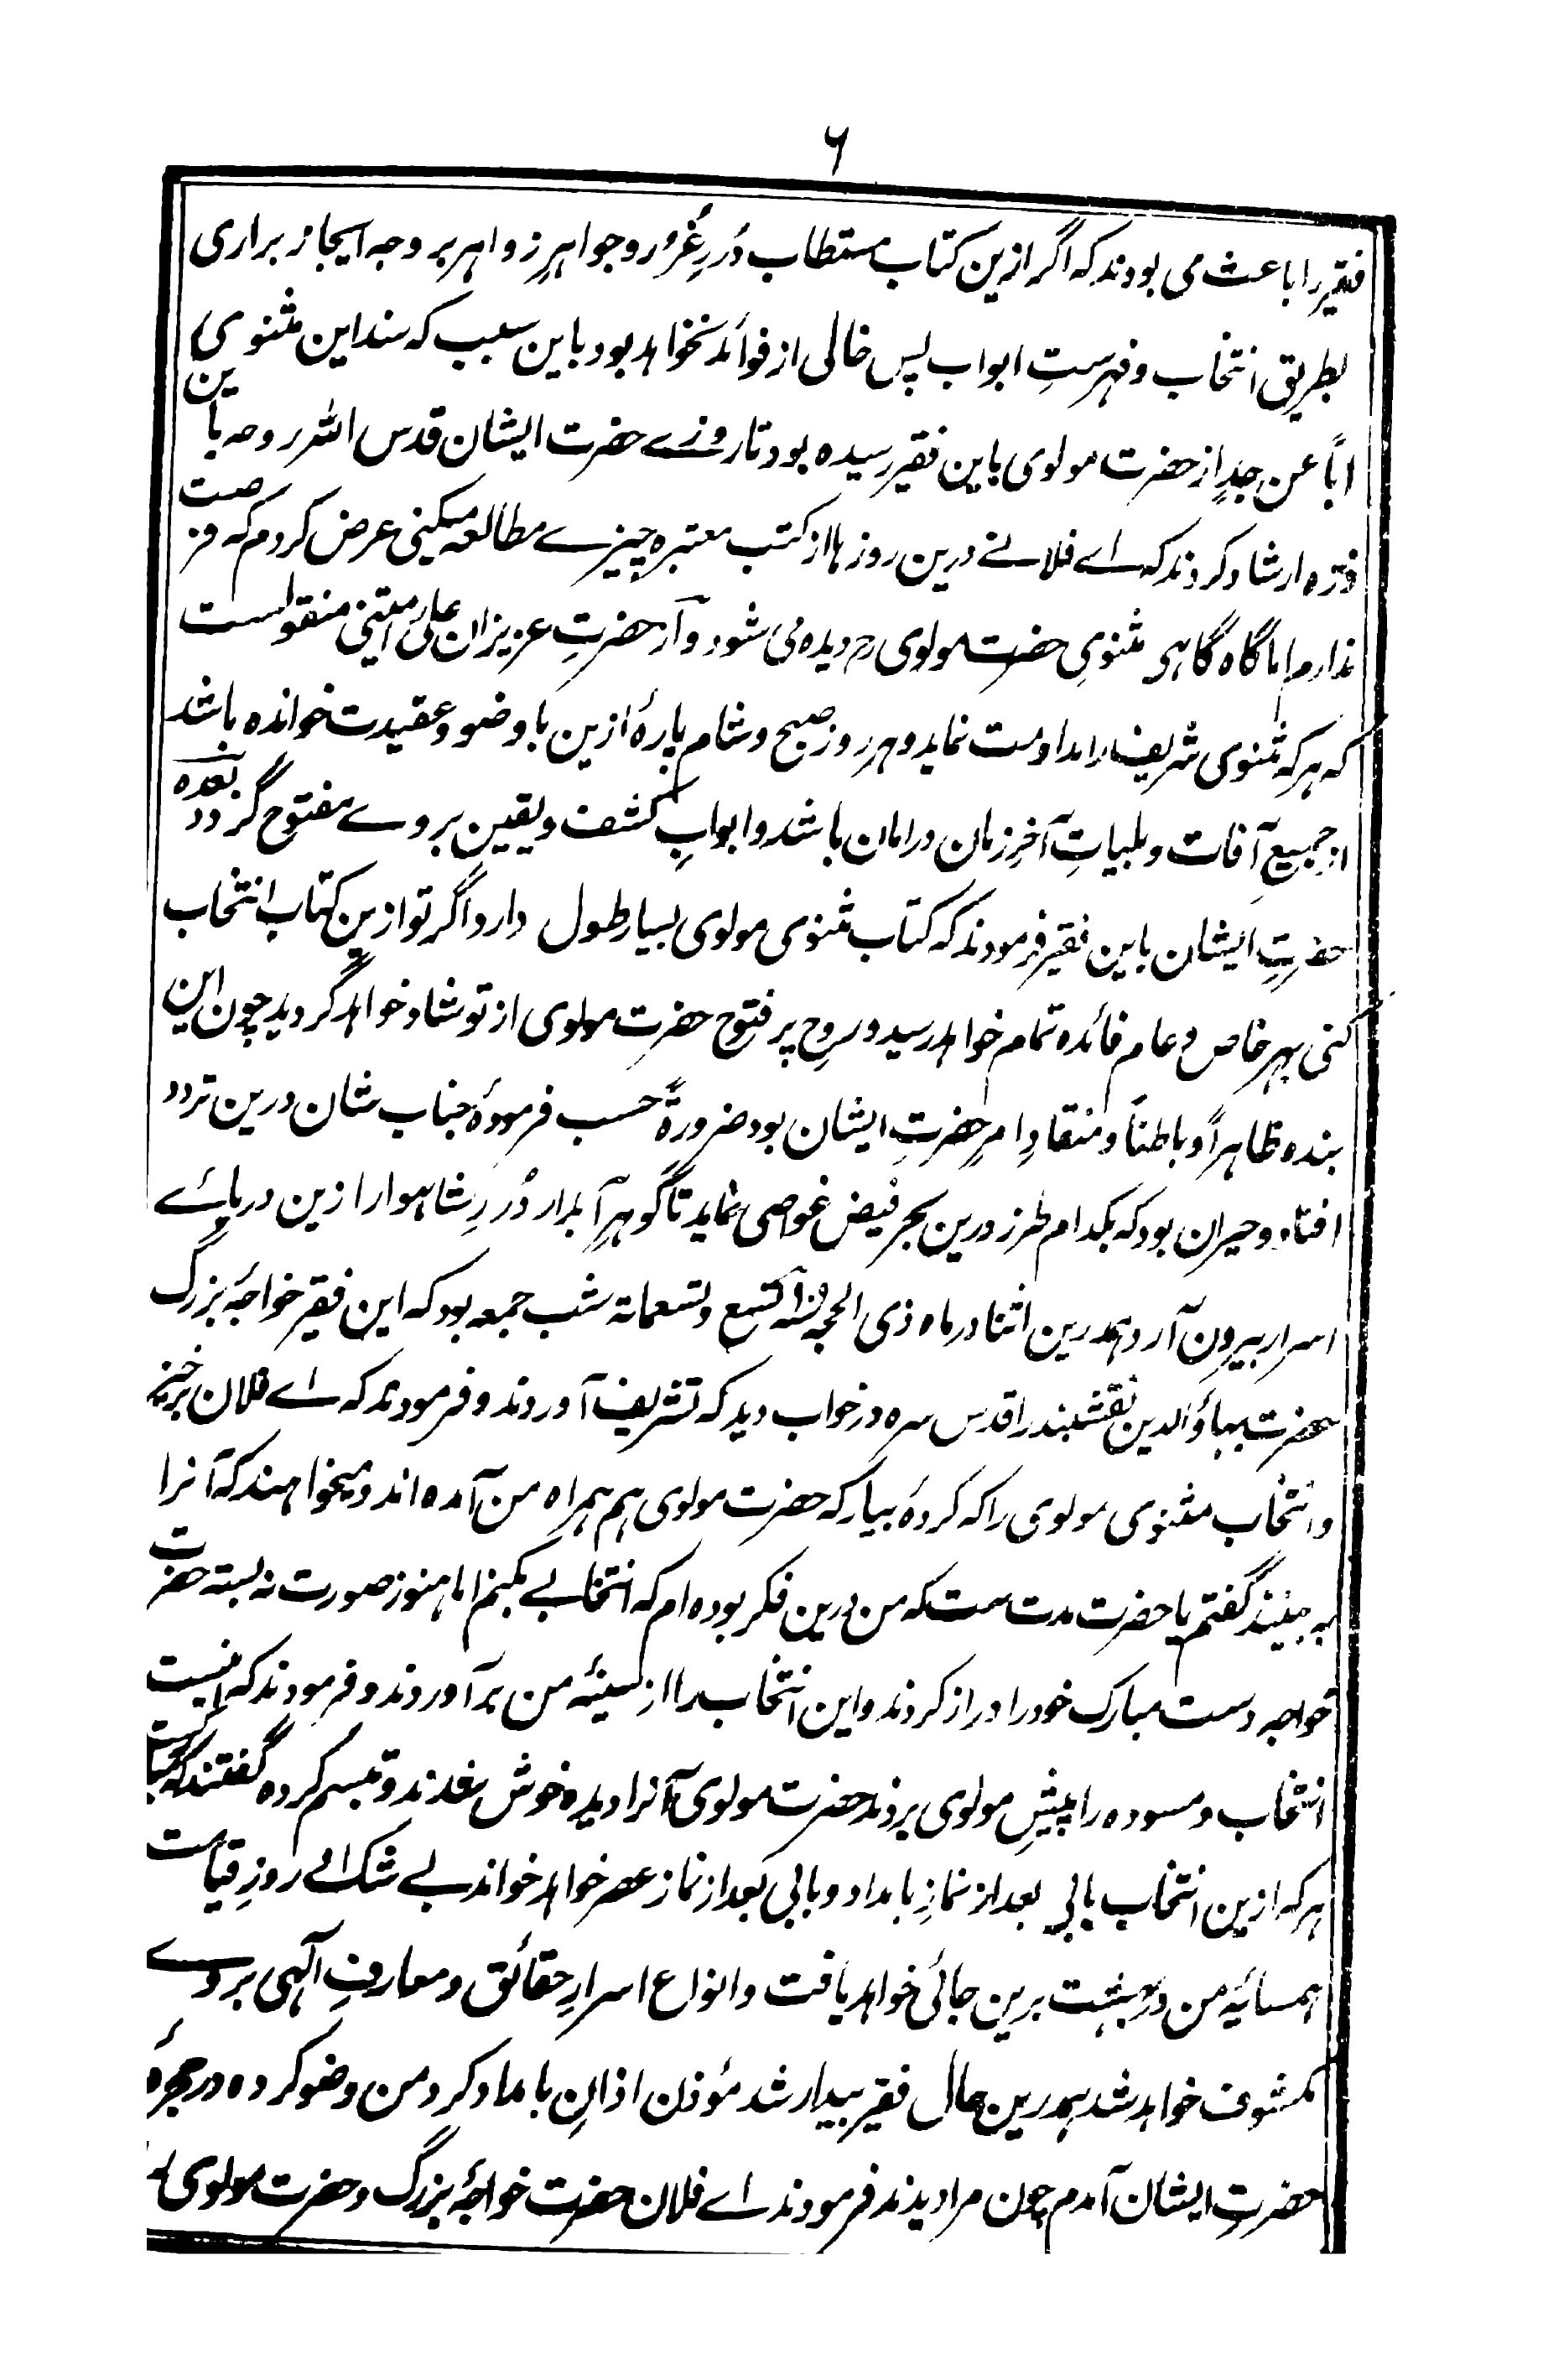 ۶
فقیر را باعث می بودند که اگر ازین کتاب مستطاب دُررِ غُرر و جواهرِ زواهر بر وجه ایجاز براری
بطریق انتخاب و فهرستِ ابواب پس خالی از فوائد نخواهد بود باین سبب که سند این مثنوی
اباً عن جدٍ از حضرت مولوی باین فقیر رسیده بود تا روزے حضرت ایشان قدس الله روحه باین
ذرّه ارشاد کردند که اے فلانے درین روزها از کتب معتبره چیزے مطالعه میکنی عرض کردم که فرصت
ندارم اما گاه گاهی مثنویِ حضرت مولوی رح دیده می شود و از حضرتِ عزیزان علی رامیتنی منقولست
که هر که مثنوی شریف را مداومت نماید و هر روز صبح و شام پارهٔ ازین با وضو و عقیدت خوانده باشد
از جمیعِ آفات و بلیاتِ آخرِ زمان در امان باشد و ابوابِ کشف و یقین بروے مفتوح گردد بعده
حضرتِ ایشان باین فقیر فرمودند که کتاب مثنوی مولوی بسیار طول دارد اگر تو ازین کتاب انتخاب
کنی بهر خاص و عام فائده تمام خواهد رسید و روح پر فتوح حضرت مولوی از تو شاد خواهد گردید چون این
بنده ظاهراً و باطناً و منقادِ امرِ حضرتِ ایشان بود ضرورةً حسب فرمودهٔ جناب شان درین تردد
افتاد و حیران بود که بکدام طرز درین بحرِ فیض غواصی نماید تا گوهرِ آبدار دُررِ شاهوار ازین دریائے
اسرار بیرون آرد همدرین اثنا در ماه ذی الحجه سنه تسع و تسعمائة شب جمعه بود که این فقیر خواجهٔ بزرگ
حضرت بهاؤالدین نقشبند را قدس سره در خواب دید که تشریف آوردند و فرمودند که اے فلان برخیز
و انتخاب مثنوی مولوی را که کردهٔ بیار که حضرت مولوی هم همراه من آمده اند و میخواهند که آنرا
به بینند گفتم یا حضرت مدت ست که من درین فکر بوده ام که انتخابے بکنم اما هنوز صورت نه بسته حضرت
خواجه دست مبارک خود را دراز کردند و این انتخاب را از سینهٔ من برآوردند و فرمودند که اینست
انتخاب و مسوده را پیشِ مولوی بردند حضرت مولوی آنرا دیده خوش شدند و تبسم کرده گفتند که
هر که ازین انتخاب بابی بعد از نمازِ بامداد و بابی بعد از نماز عصر خواهد خواند بے شک الے روزِ قیامت
همسایهٔ من در بهشت برین جائی خواهد یافت و انواع اسرارِ حقائق و معارفِ آلهی بروے
مکشوف خواهد شد همدرین حال فقیر بیدار شد مؤذن اذانِ بامداد کرد و من وضو کرده در حجرهٔ
حضرتِ ایشان آمدم چون مرا دیدند فرمودند اے فلان حضرت خواجهٔ بزرگ و حضرت مولوی